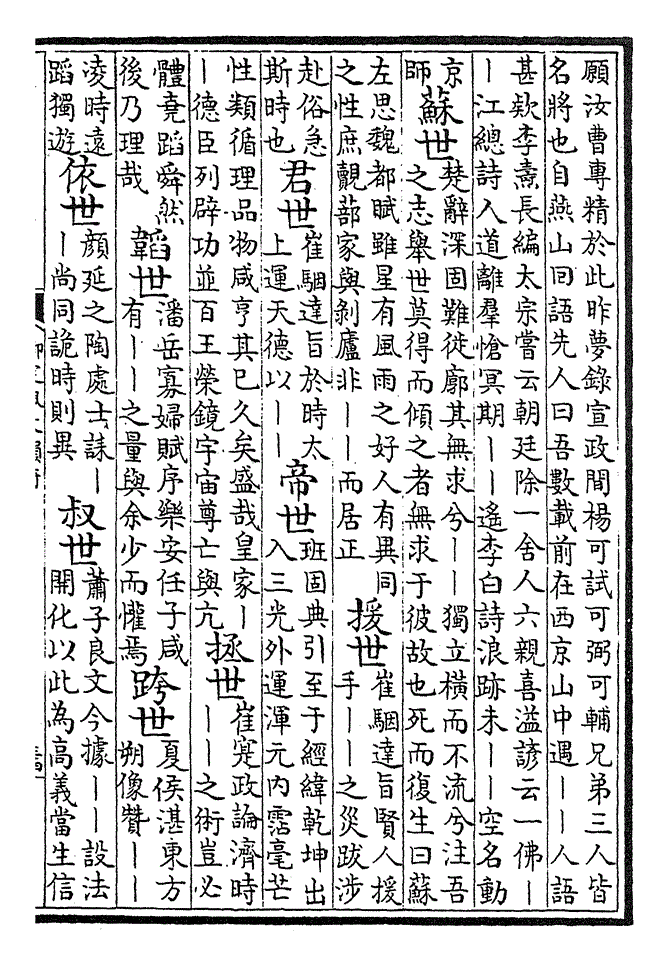 願汝曹專精於此昨夢錄宣政間楊可試可弼可輔兄弟三人皆
名將也自燕山回語先人曰吾數載前在西京山中遇丨丨人語
甚款李燾長編太宗嘗云朝廷除一舍人六親喜溢諺云一佛丨
丨江總詩人道離羣愴冥期丨丨遙李白詩浪跡未丨丨空名動
京
師
蘇世
楚辭深固難徙廓其無求兮丨丨獨立橫而不流兮注吾
之志舉世莫得而傾之者無求于彼故也死而復生曰蘇
左思魏都賦雖星有風雨之好人有異同
之性庶覿蔀家與剝廬非丨丨而居正
援世
崔駰達旨賢人援
手丨丨之災跋涉
赴俗急
斯時也
君世
崔駰達旨於時太
上運天德以丨丨
帝世
班固典引至于經緯乾坤出
入三光外運渾元内霑毫芒
性類循理品物咸亨其已久矣盛哉皇家丨
丨德臣列辟功並百王榮鏡宇宙尊亡與亢
拯世
崔寔政論濟時
丨丨之術豈必
體堯蹈舜然
後乃理哉
韜世
潘岳寡婦賦序樂安任子咸
有丨丨之量與余少而懽焉
跨世
夏侯湛東方
朔像贊丨丨
凌時遠
蹈獨遊
依世
顏延之陶處士誄丨
丨尚同詭時則異
叔世
蕭子良文今據丨丨設法
開化以此為高義當生信